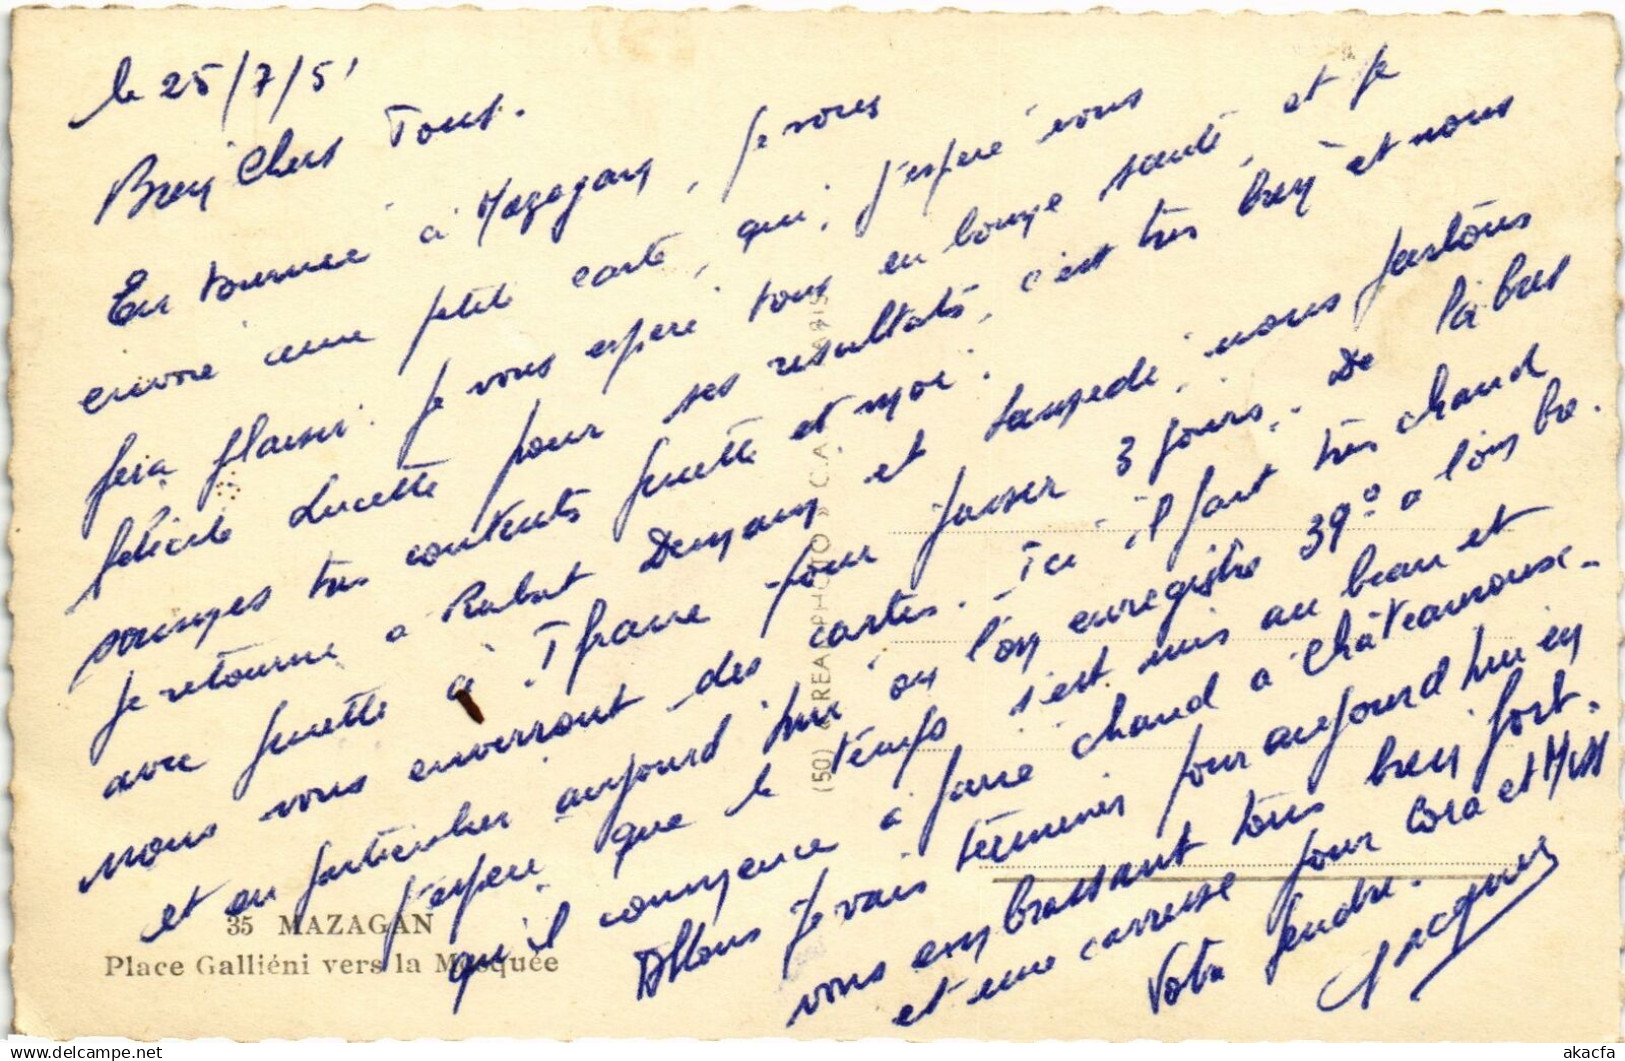 le 25/7/51
Bien Chers Tous.
En tournée à Mazagan, je vous
envoie une petite carte, qui, j'espère vous
fera plaisir. Je vous espère tous en bonne santé, et je
félicite Lucette pour ses resultats, c'est très bien et nous
sommes très contents Ginette et moi.
Je retourne a Rabat Demain et samedi, nous partons
avec Ginette à Ifrane pour passer 3 jours. De là bas
nous vous enverront des cartes. Ici il fait très chaud
et en particulier aujourd'hui ou l'on enregistre 39° a l'ombre.
J'espère que le temps s'est mis au beau et
qu'il commence a faire chaud a Châteauroux.
Allons Je vais terminer pour aujourd hui en
vous embrassant tous bien fort.
et une carresse pour Cora et Miss
Votre Gendre.
Jacques
35 MAZAGAN
Place Galliéni vers la Mosquée
akacfa